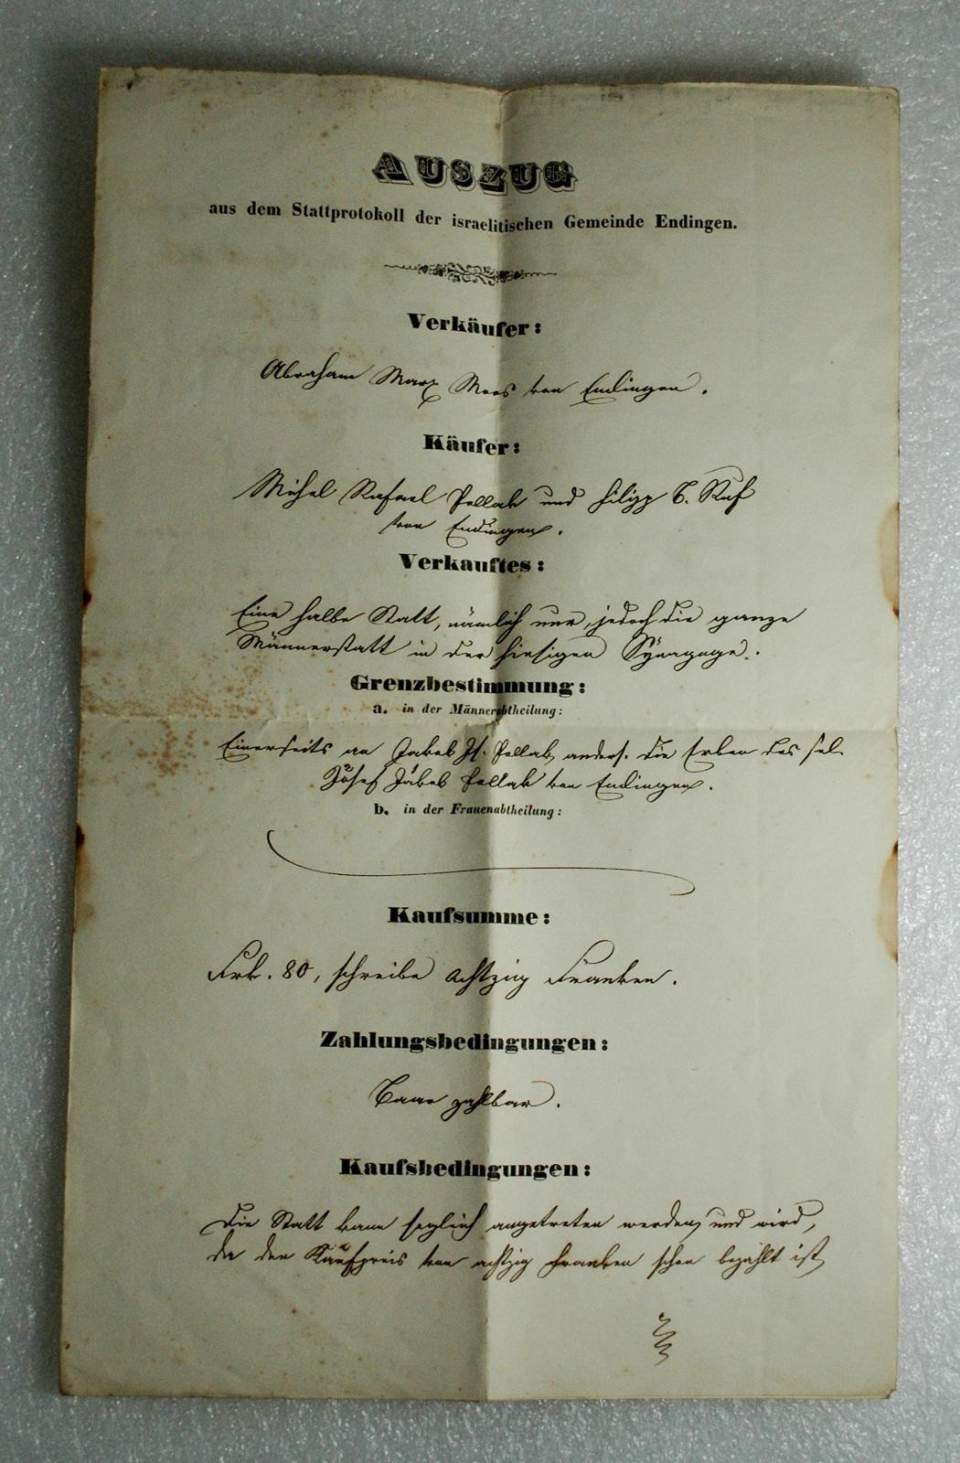 AUSZUG
aus dem Stattprotokoll der israelitischen Gemeinde Endingen.
Verkäufer:
Abraham Marx Moos von Endingen.
Käufer:
Michel Rafael Pollak und Filipp B. Ruf
von Endingen.
Verkauftes:
Eine halbe Statt, nämlich nur, jedoch die ganze
Männerstatt in der hiesigen Synagoge.
Grenzbestimmung:
a. in der Männerabtheilung:
Einerseits an Jakob Pollak, anders. die Erben des sel.
Josef Jakob Pollak von Endingen.
b. in der Frauenabtheilung:
Kaufsumme:
Frk. 80, schreibe achtzig Franken.
Zahlungsbedingungen:
Baar zahlbar.
Kaufsbedingungen:
Die Statt kann soglich angetreten werden, und wird,
da der Kaufpreis von achtzig Franken schon bezahlt ist,